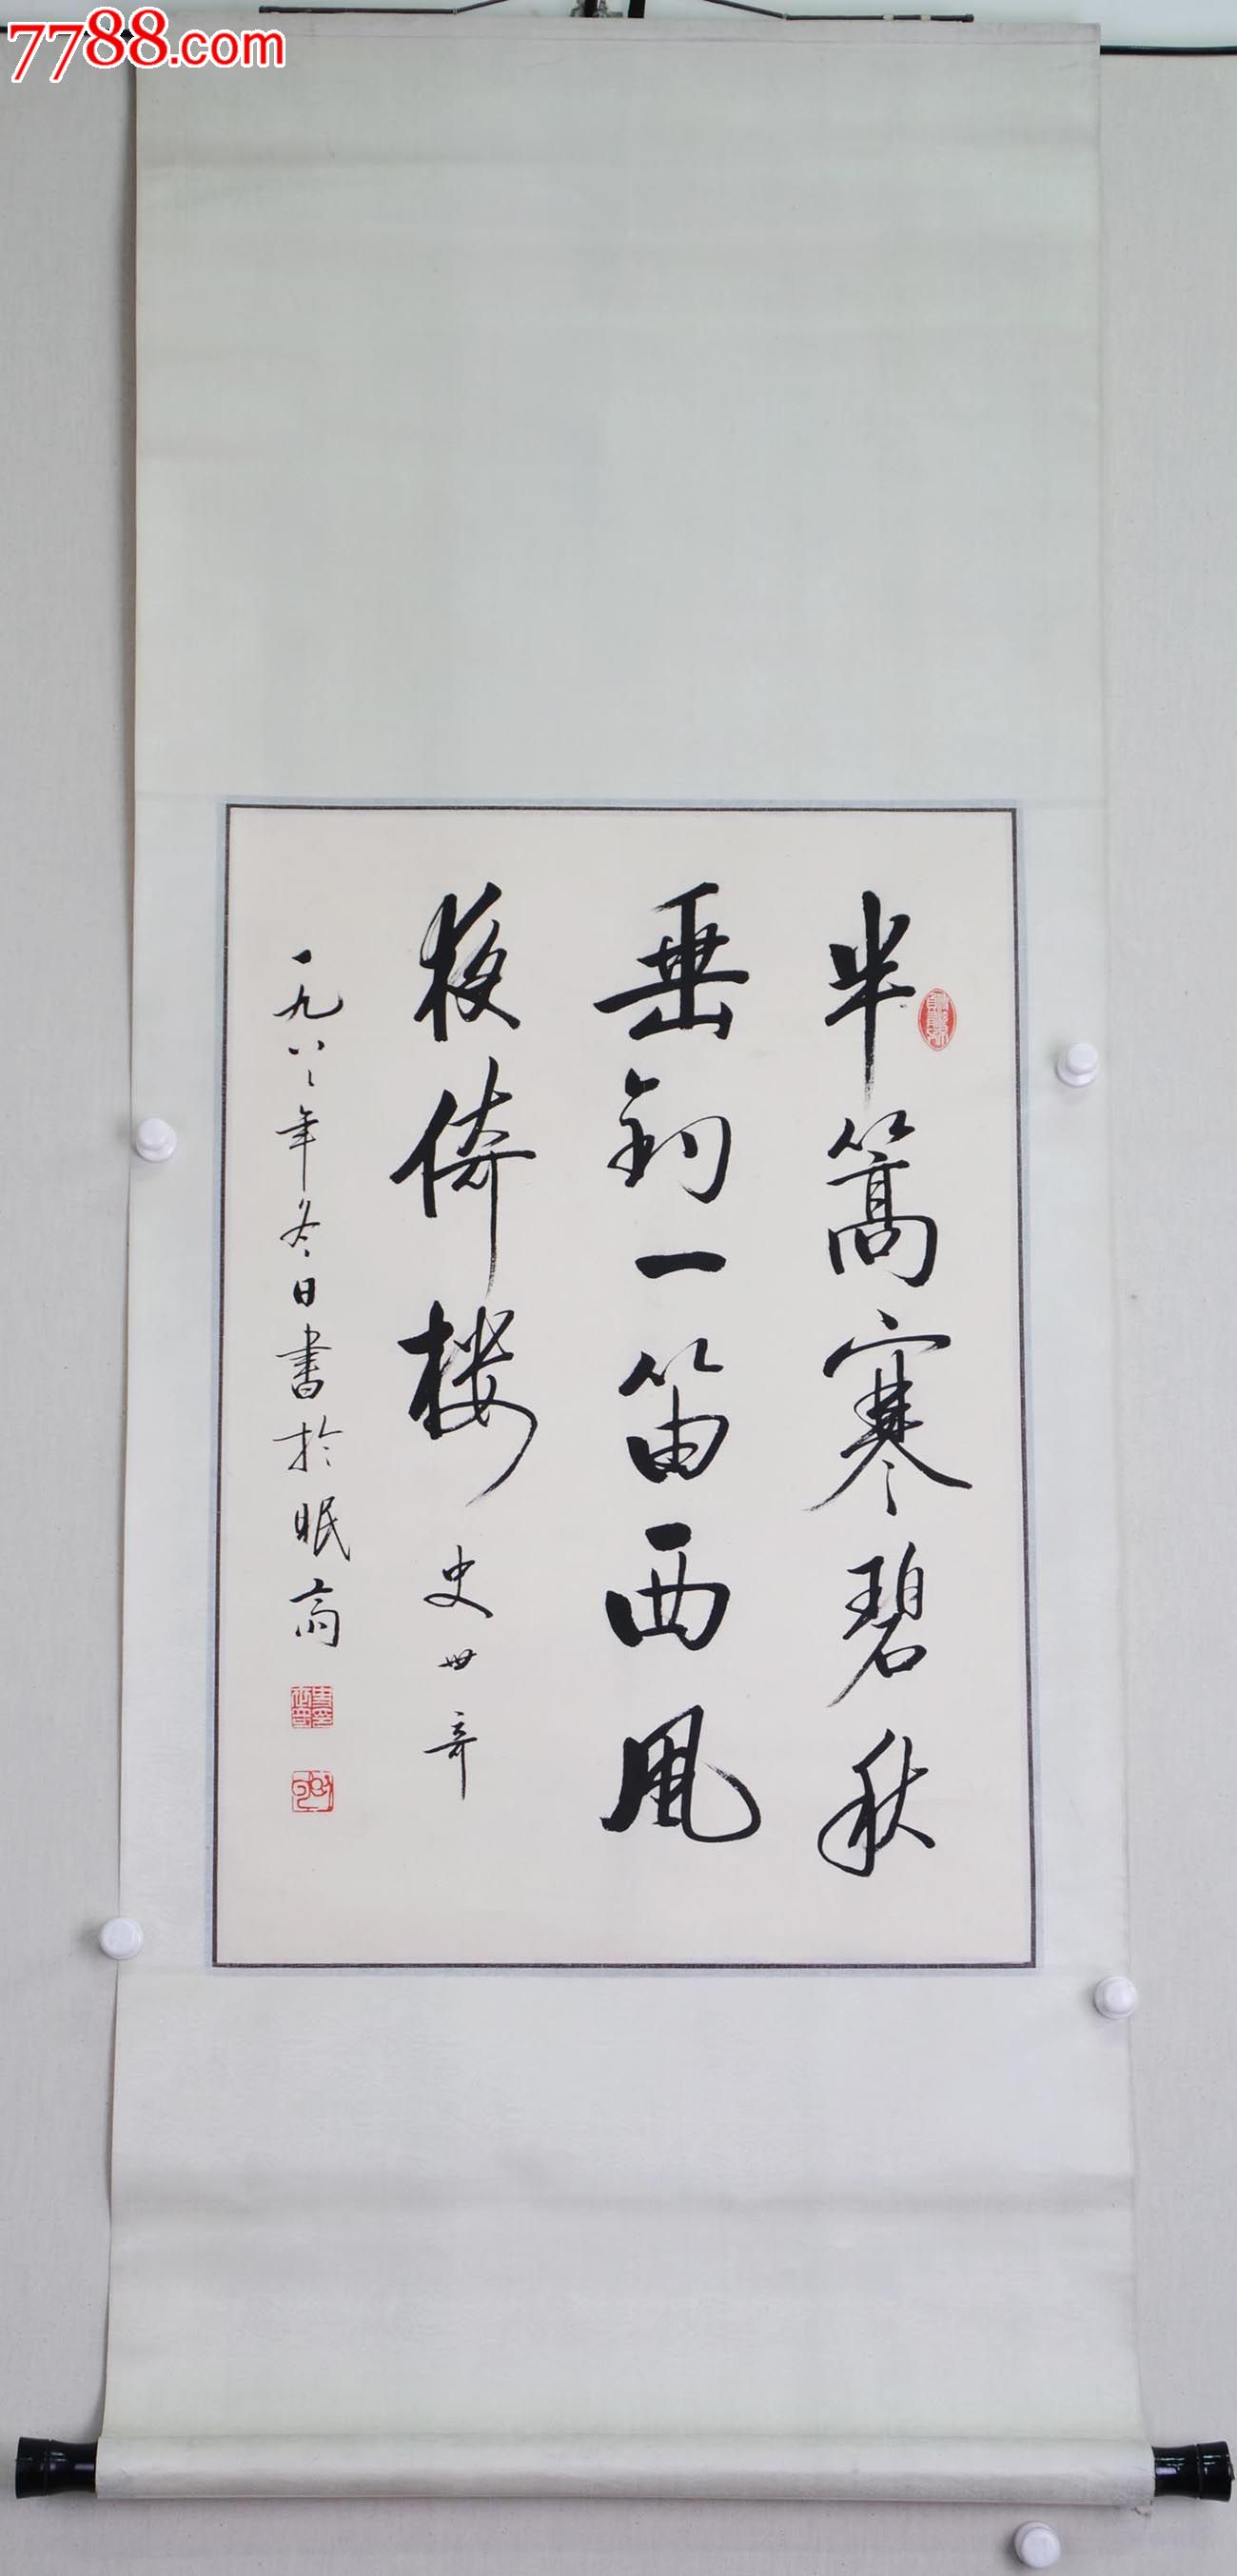 7788.com
半篙寒碧秋
垂钓一笛西风
夜倚楼 史世奇
一九八二年冬日書於眠斋